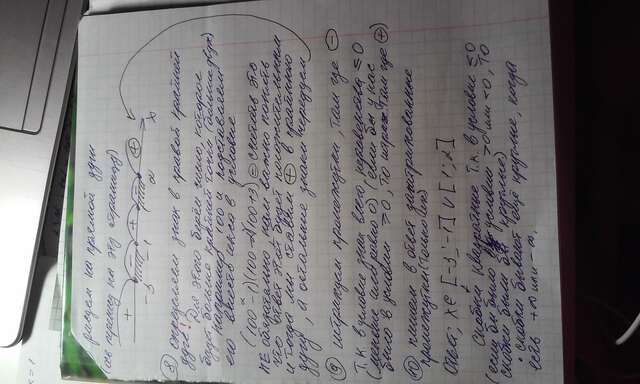 рисуем на прямой дуги
(ось перенес на эту страницу)
+ - + - +
-3 1 2 x
8 определяем знак в правой крайней
дуге! Для этого берём число, которое
будет больше крайней точки (больше двух)
Например 100 и подставляем
его вместо икса в условие
(100-1)(100-2)(100+3) считать это
НЕ обязательно, нам важно понять
что ответ этот будет положительным
и тогда мы ставим + в крайнюю
дугу, а остальные знаки чередуем
9 штрихуем промежутки, там где -
т.к. в условие знак всего, неравенства ≤0
(меньше или равно 0) (если бы у нас
было в условии >0, то штрих. там где +)
10 пишем в ответ заштрихованные
промежутки (только их)
Ответ: x∈[-3;-1]∪[1;2]
Скобки квадратные т.к. в условие ≤0
(если бы было в условии >0 или <0, то
скобки были бы круглые)
• скобки бывают ещё круглые, когда
есть +∞ или -∞.